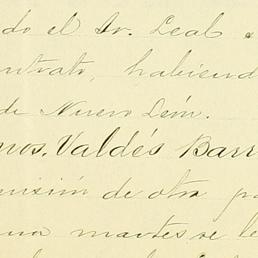 do el Sr. Leal
ntrato, habiend
de Nuevo León.
nos. Valdés Barr
misión de otra pa
martes se le